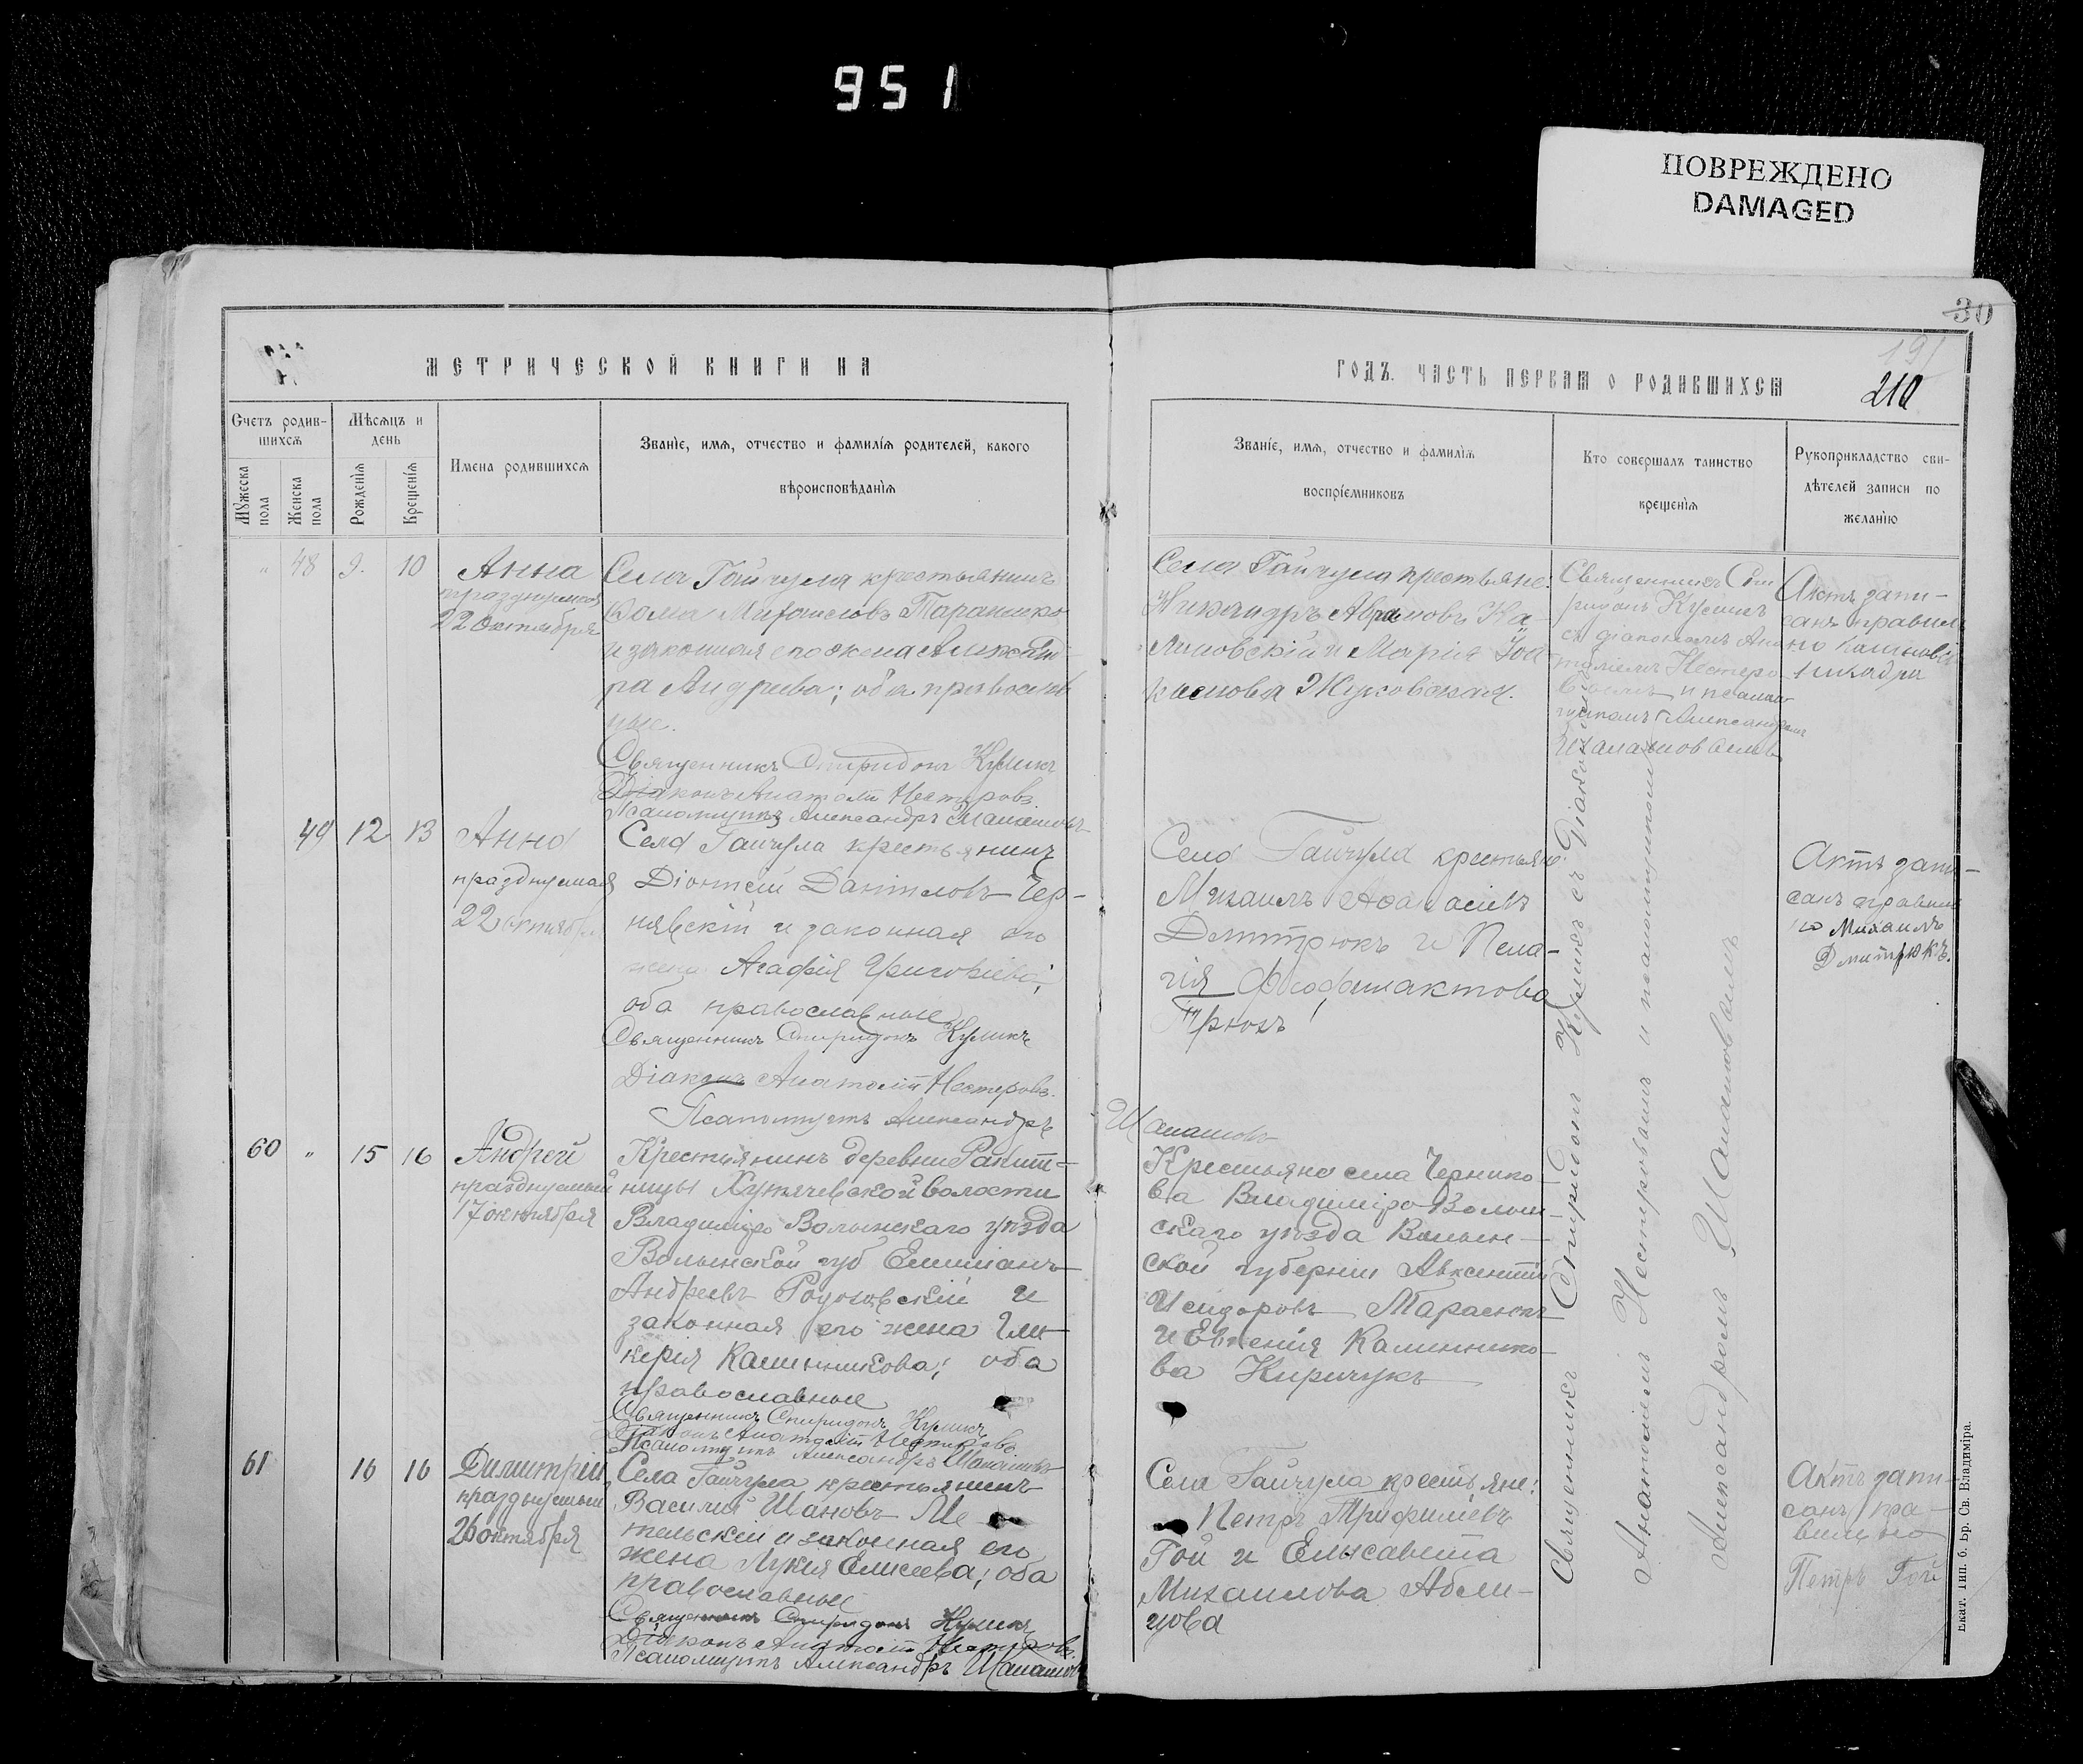 951
ПОВРЕЖДЕНО
DAMAGED
30
191
210
МЕТРИЧЕСКОЙ КНИГИ НА
ГОДЪ. ЧАСТЬ ПЕРВАЯ О РОДИВШИХСЯ
Счетъ родив-
шихся
Мѣсяцъ и
день
Мужеска
пола
Женска
пола
Рожденія
Крещенія
Имена родившихся
Званіе, имя, отчество и фамилія родителей, какого
вѣроисповѣданія
Званіе, имя, отчество и фамилія
воспріемниковъ
Кто совершалъ таинство
крещенія
Рукоприкладство сви-
дѣтелей записи по
желанію
" 48 9. 10
Анна
празднуемая
22 октября
Села Гайчула крестьянинъ
и законная его жена
ра Андреева; оба православ
ные.
Священникъ Спиридонъ Куликъ
Діаконъ Анатолій Нестеровъ.
Псаломщикъ Александръ Шалашовъ
Села Гайчула крестьяне:
Никандръ Ка-
линовскій и Марія
Жуковская.
Священникъ Спи
ридонъ Куликъ
съ діакономъ Ана
толіемъ Нестеро
вымъ и псалом
щикомъ Александромъ
Шалашовымъ
Актъ запи-
санъ правиль
но
49 12 13
Анна
празднуемая
22 октября
Села Гайчула крестьянинъ
Даніиловъ Чер-
нявскій и законная его
жена Агафія Григоріева;
оба православные
Священникъ Спиридонъ Куликъ
Діаконъ Анатолій Нестеровъ.
Псаломщикъ Александръ
Шалашовъ
Села Гайчула крестьяне:
Михаилъ Аѳанасіевъ
Дмитрюкъ и Пела-
гія Феофилактова
Трюхъ
Актъ запи-
санъ правиль
но Михаилъ
Дмитрюкъ.
60 " 15 16
Андрей
празднуемый
17 октября
Крестьянинъ деревни Ракит-
ницы волости
Владиміро Волынскаго уѣзда
Волынской губ Емиліанъ
Андреевъ и
законная его жена Гли-
керія Калинникова; оба
православные
Священникъ Спиридонъ Куликъ
Діаконъ Анатолій Нестеровъ
Псаломщикъ Александръ Шалашовъ
Крестьяне села Чернико-
ва Владиміро Волын-
скаго уѣзда Волын-
ской губерніи Авксентій
Исидоровъ Тарасюкъ
и Евгенія Калиннико-
ва Киричукъ
61 16 16
Димитрій
празднуемый
26 октября
Села Гайчула крестьянинъ
Василій Ивановъ Ме
тельскій и законная его
жена Лукія Елисеева; оба
православные
Священникъ Спиридонъ Куликъ
Діаконъ Анатолій Нестеровъ.
Псаломщикъ Александръ Шалашовъ
Села Гайчула крестьяне:
Петръ Трифиліевъ
Гой и Елисавета
Михаилова Абли-
цова
Актъ запи-
санъ пра-
вильно
Петръ Гой
Священникъ Спиридонъ Куликъ съ Діакономъ
Анатоліемъ Нестеровымъ и псаломщикомъ
Александромъ Шалашовымъ
Екат. Тип. б. Бр. Св. Владиміра.